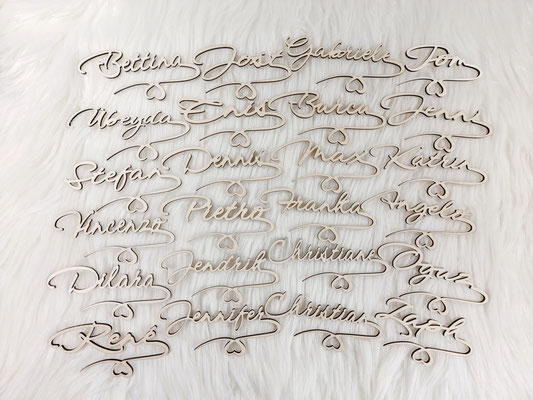 Bettina Jost Gabriele Tom
Übeyda Enis Burcu Jenni
Stefan Dennis Max Katrin
Vincenzo Pietro Franka Angelo
Dilara Jendrik Christiane
René Jennifer Christian